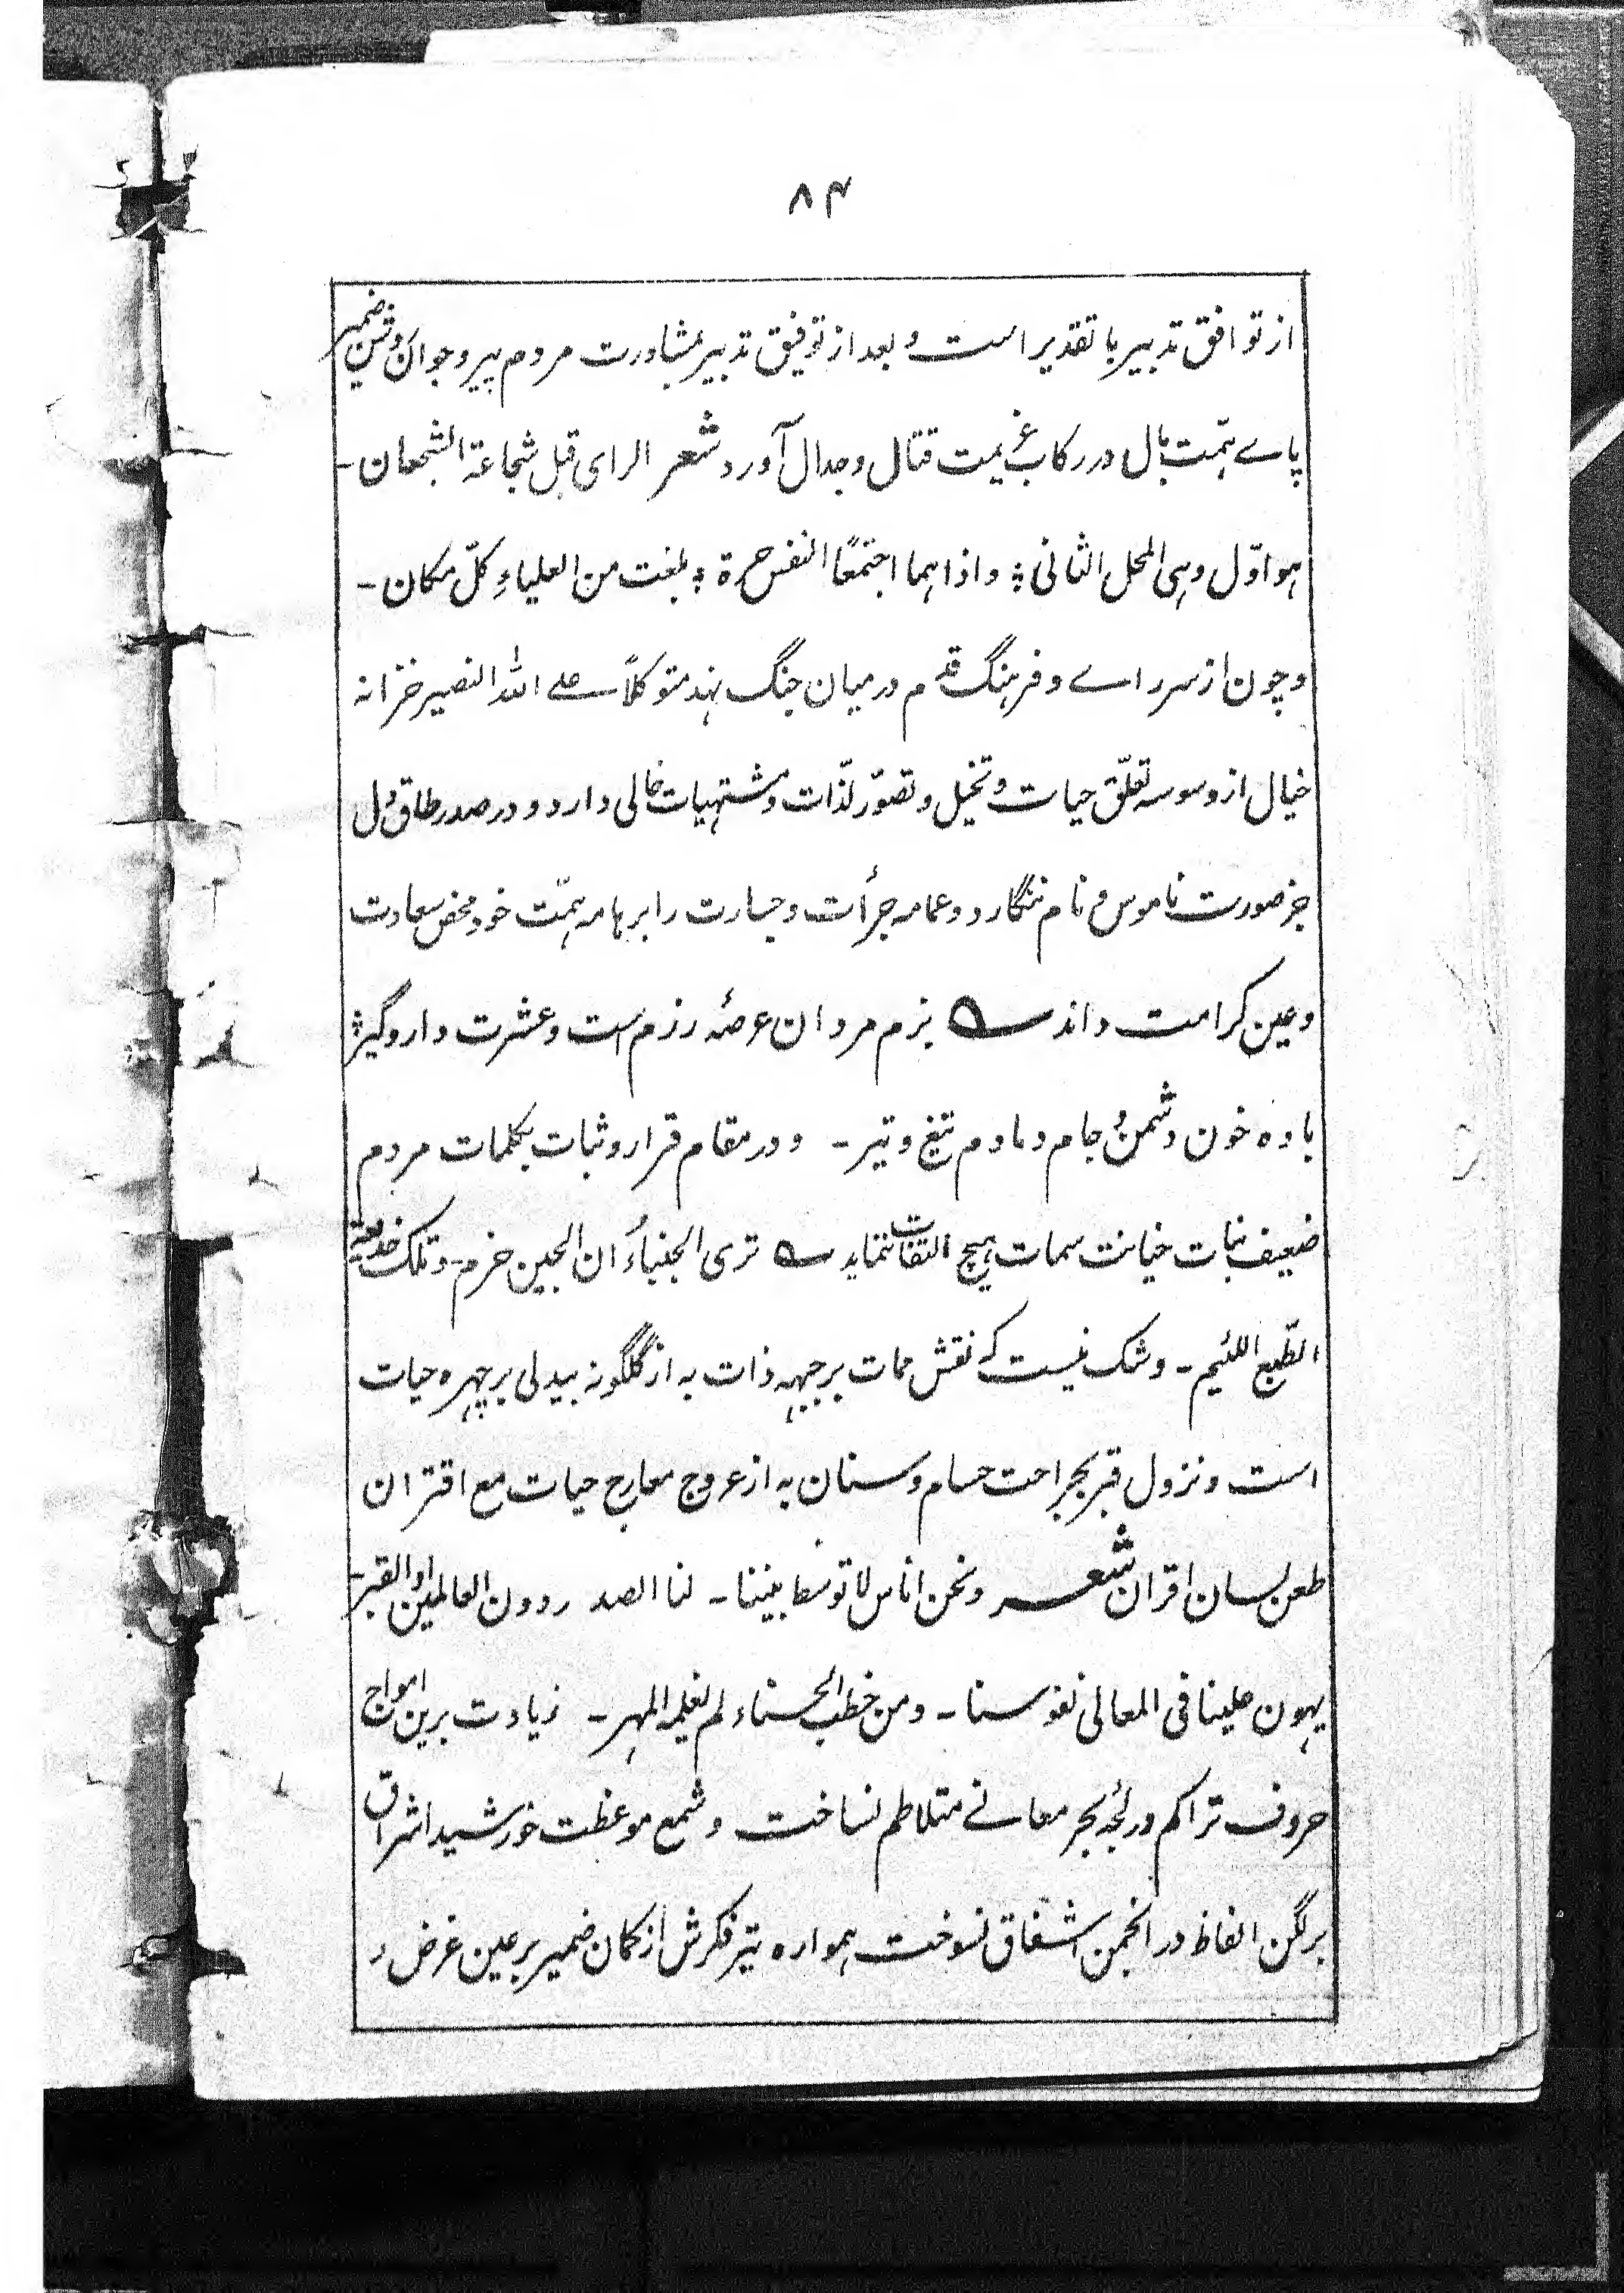 ۸۴
از توافق تدبیر با تقدیر است و بعد از توفیق تدبیر بمشاورت مردم پیر و جوان روشن ضمیر
پاے ہمت بال در رکاب عزیمت قتال و جدال آورد شعر الرای قبل شجاعۃ الشجعان ۔
ہو اوّل وہی المحل الثانی ؛ و اذا ہما اجتمعًا النفس حرۃ ؛ بلغت من العلیاءِ کلّ مکان ۔
و چون از سر راے و فرہنگ قدم در میان جنگ نہد متوکلاً علے اللہ النصیر خزانہ
خیال از وسوسہ تعلّق حیات و تخیل و تصوّر لذّات و مشتہیات خالی دارد و در صدر طاق دل
جز صورت ناموس و نام ننگارد و عمامہ جرأت و جسارت را بر ہامہ ہمّت خود محض سعادت
و عین کرامت داند ؎ بزم مردان عرصۂ رزم است و عشرت دار و گیر ؛
بادہ خون دشمن و جام دمادم تیغ و تیر ۔ و در مقام قرار و ثبات بکلمات مردم
ضعیف نبات خیانت سمات ہیچ التفات ننماید ؎ تری الجبناءُ ان الجبن حزم ۔ و تلک خدیعۃ
الطّبع اللئیم ۔ و شک نیست کہ نقش ممات بر جبہہ ذات بہ از گلگونہ بیدلی بر چہرہ حیات
است و نزول قبر بجراحت حسام و سنان بہ از عروج معارج حیات مع اقتران
طعن لسان اقران شعر و نحن اناس لا توسط بیننا ۔ لنا الصدر دون العالمین او القبر ۔
یہون علینا فی المعالی نفوسنا ۔ و من خطب الحسناء لم یغلہ المہر ۔ زیادت برین امواج
حروف تراکم در لجّۂ بحر معانے متلاطم نساخت و شمع موعظت خورشید اشراق
بر لگن الفاظ در انجمن اشفاق نسوخت ہموارہ تیر فکرش از کمان ضمیر بر عین غرض و